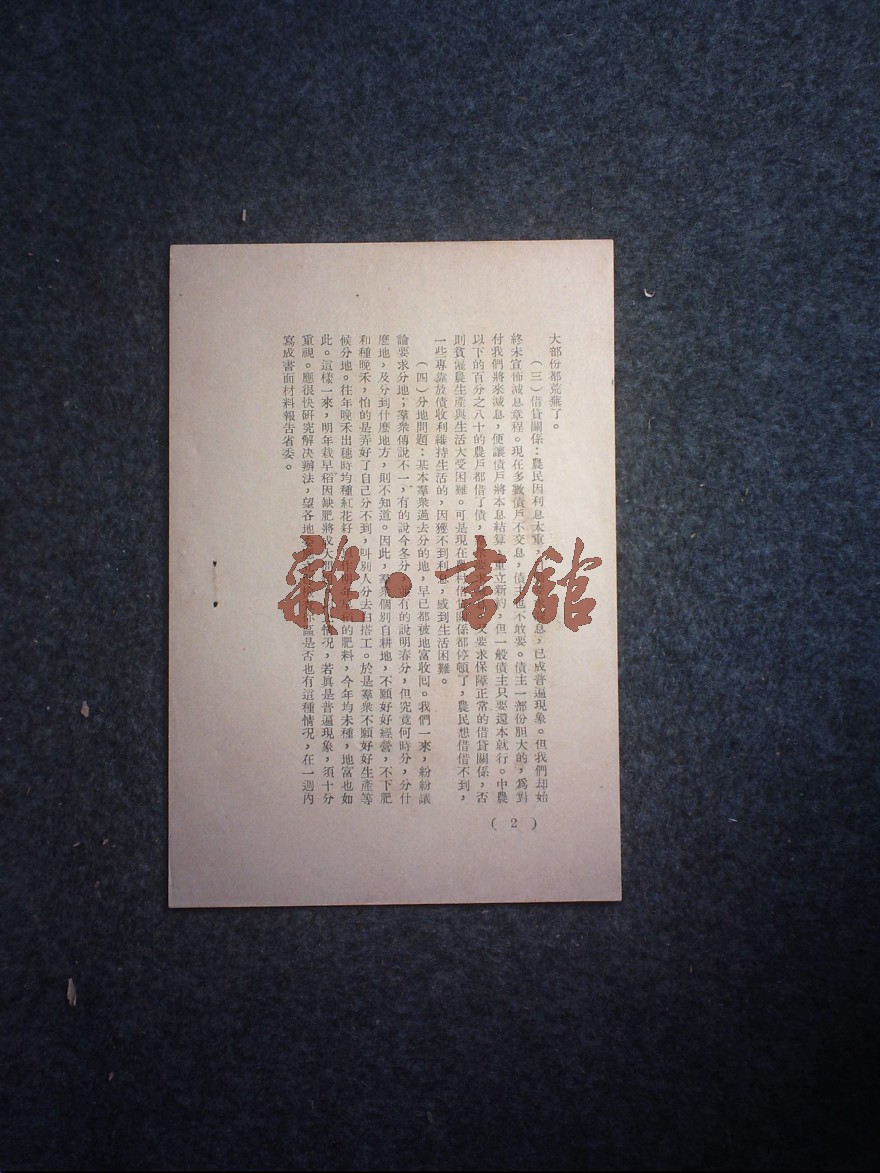 大部份都荒蕪了。
（三）借貸關係：農民因利息太重，息，已成普遍現象。但我們却始
終未宣佈減息章程。現在多數債戶不交息，債主也不敢要。債主一部份胆大的，爲對
付我們將來減息，便讓債戶將本息結算，重立新約，但一般債主只要還本就行。中農
以下的百分之八十的農戶都借了債，又要求保障正常的借貸關係，否
則貧雇農生產與生活大受困難。可是現在農村借貸關係都停頓了，農民想借借不到，
一些專靠放債收利維持生活的，因獲不到利息，感到生活困難。
（四）分地問題：基本羣衆過去分的地，早已都被地富收回。我們一來，紛紛議
論要求分地；羣衆傳說不一，有的說今冬分，有的說明春分，但究竟何時分，分什
麽地，及分到什麽地方，則不知道。因此，羣衆個別自耕地，不願好好經營，不下肥
和種晚禾，怕的是弄好了自己分不到，叫別人分去白搭工。於是羣衆不願好好生產等
候分地。往年晚禾出穗時均種紅花好的肥料，今年均未種，地富也如
此。這樣一來，明年栽早稻因缺肥將成大問情况，若真是普遍現象，須十分
重視。應很快研究解决辦法，望各地區是否也有這種情况，在一週內
寫成書面材料報告省委。
（2）
雜·書館